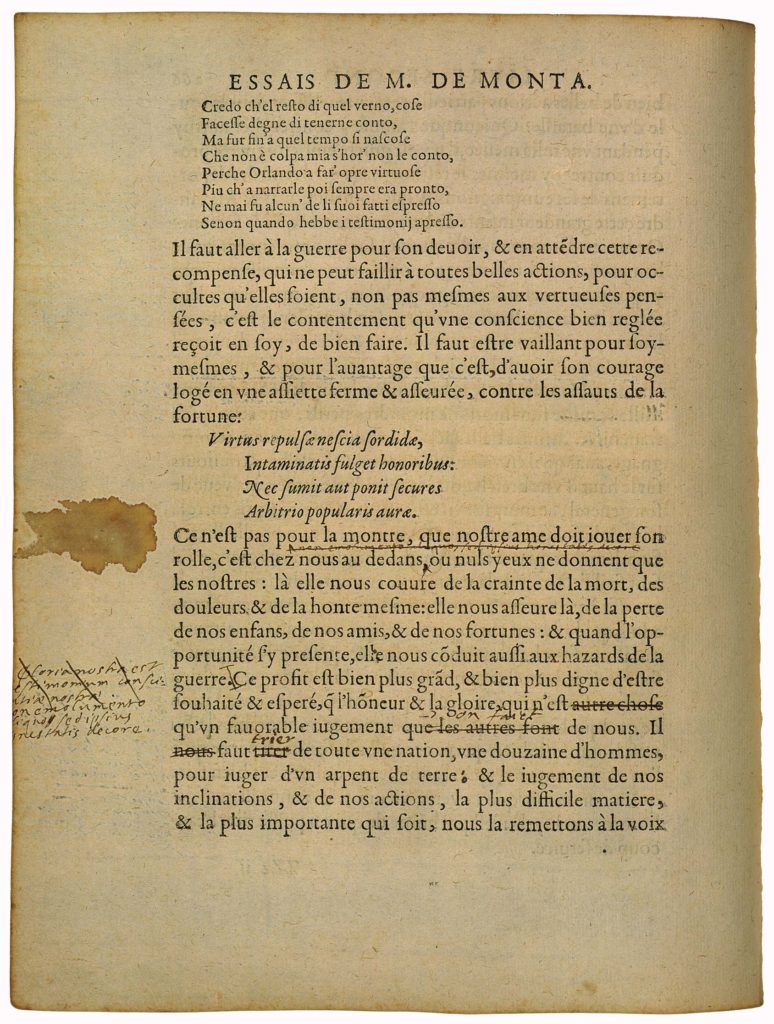 ESSAIS DE M. DE MONTA.
Credo ch'el resto di quel verno, cose
Facesse degne di tenerne conto,
Ma fur fin'a quel tempo si nascose
Che non è colpa mia s'hor' non le conto,
Perche Orlando a far' opre virtuose
Piu ch'a narrarle poi sempre era pronto,
Ne mai fu alcun' de li suoi fatti espresso
Senon quando hebbe i testimonij apresso.
Il faut aller à la guerre pour son deuoir, & en attẽdre cette re-
compense, qui ne peut faillir à toutes belles actions, pour oc-
cultes qu'elles soient, non pas mesmes aux vertueuses pen-
sées, c'est le contentement qu'vne conscience bien reglée
reçoit en soy, de bien faire. Il faut estre vaillant pour soy-
mesmes, & pour l'auantage que c'est, d'auoir son courage
logé en vne assiette ferme & asseurée, contre les assauts de la
fortune:
Virtus repulsæ nescia sordidæ,
Intaminatis fulget honoribus:
Nec sumit aut ponit secures
Arbitrio popularis auræ.
Ce n'est pas pour la montre, que nostre ame doit iouer son
rolle, c'est chez nous au dedans, ou nuls yeux ne donnent que
les nostres : là elle nous couure de la crainte de la mort, des
douleurs & de la honte mesme: elle nous asseure là, de la perte
de nos enfans, de nos amis, & de nos fortunes : & quand l'op-
portunité s'y presente, elle nous cõduit aussi aux hazards de la
guerre. Ce profit est bien plus grãd, & bien plus digne d'estre
souhaité & esperé, q̃ l'hõneur & la gloire, qui n'est autre chose
qu'vn fauorable iugement que les autres font de nous. Il
trier
nous faut tirer de toute vne nation, vne douzaine d'hommes,
pour iuger d'vn arpent de terre: & le iugement de nos
inclinations, & de nos actions, la plus difficile matiere,
& la plus importante qui soit, nous la remettons à la voix
gloria nostra est
testimonium consci
entiæ nostræ